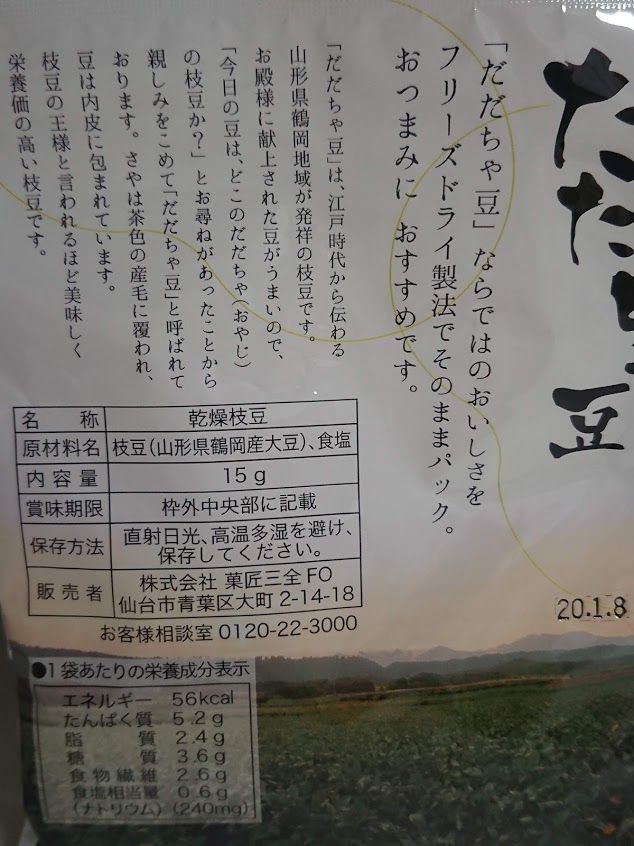 だだちゃ豆
「だだちゃ豆」ならではのおいしさを
フリーズドライ製法でそのままパック。
おつまみに おすすめです。
「だだちゃ豆」は、江戸時代から伝わる
山形県鶴岡地域が発祥の枝豆です。
お殿様に献上された豆がうまいので、
「今日の豆は、どこのだだちゃ(おやじ)
の枝豆か?」とお尋ねがあったことから
親しみをこめて「だだちゃ豆」と呼ばれて
おります。さやは茶色の産毛に覆われ、
豆は内皮に包まれています。
枝豆の王様と言われるほど美味しく
栄養価の高い枝豆です。
名称 乾燥枝豆
原材料名 枝豆(山形県鶴岡産大豆)、食塩
内容量 15g
賞味期限 枠外中央部に記載
保存方法 直射日光、高温多湿を避け、
保存してください。
販売者 株式会社 菓匠三全FO
仙台市青葉区大町 2-14-18
お客様相談室 0120-22-3000
20.1.8
●1袋あたりの栄養成分表示
エネルギー 56kcal
たんぱく質 5.2g
脂質 2.4g
糖質 3.6g
食物繊維 2.6g
食塩相当量 0.6g
(ナトリウム) (240mg)